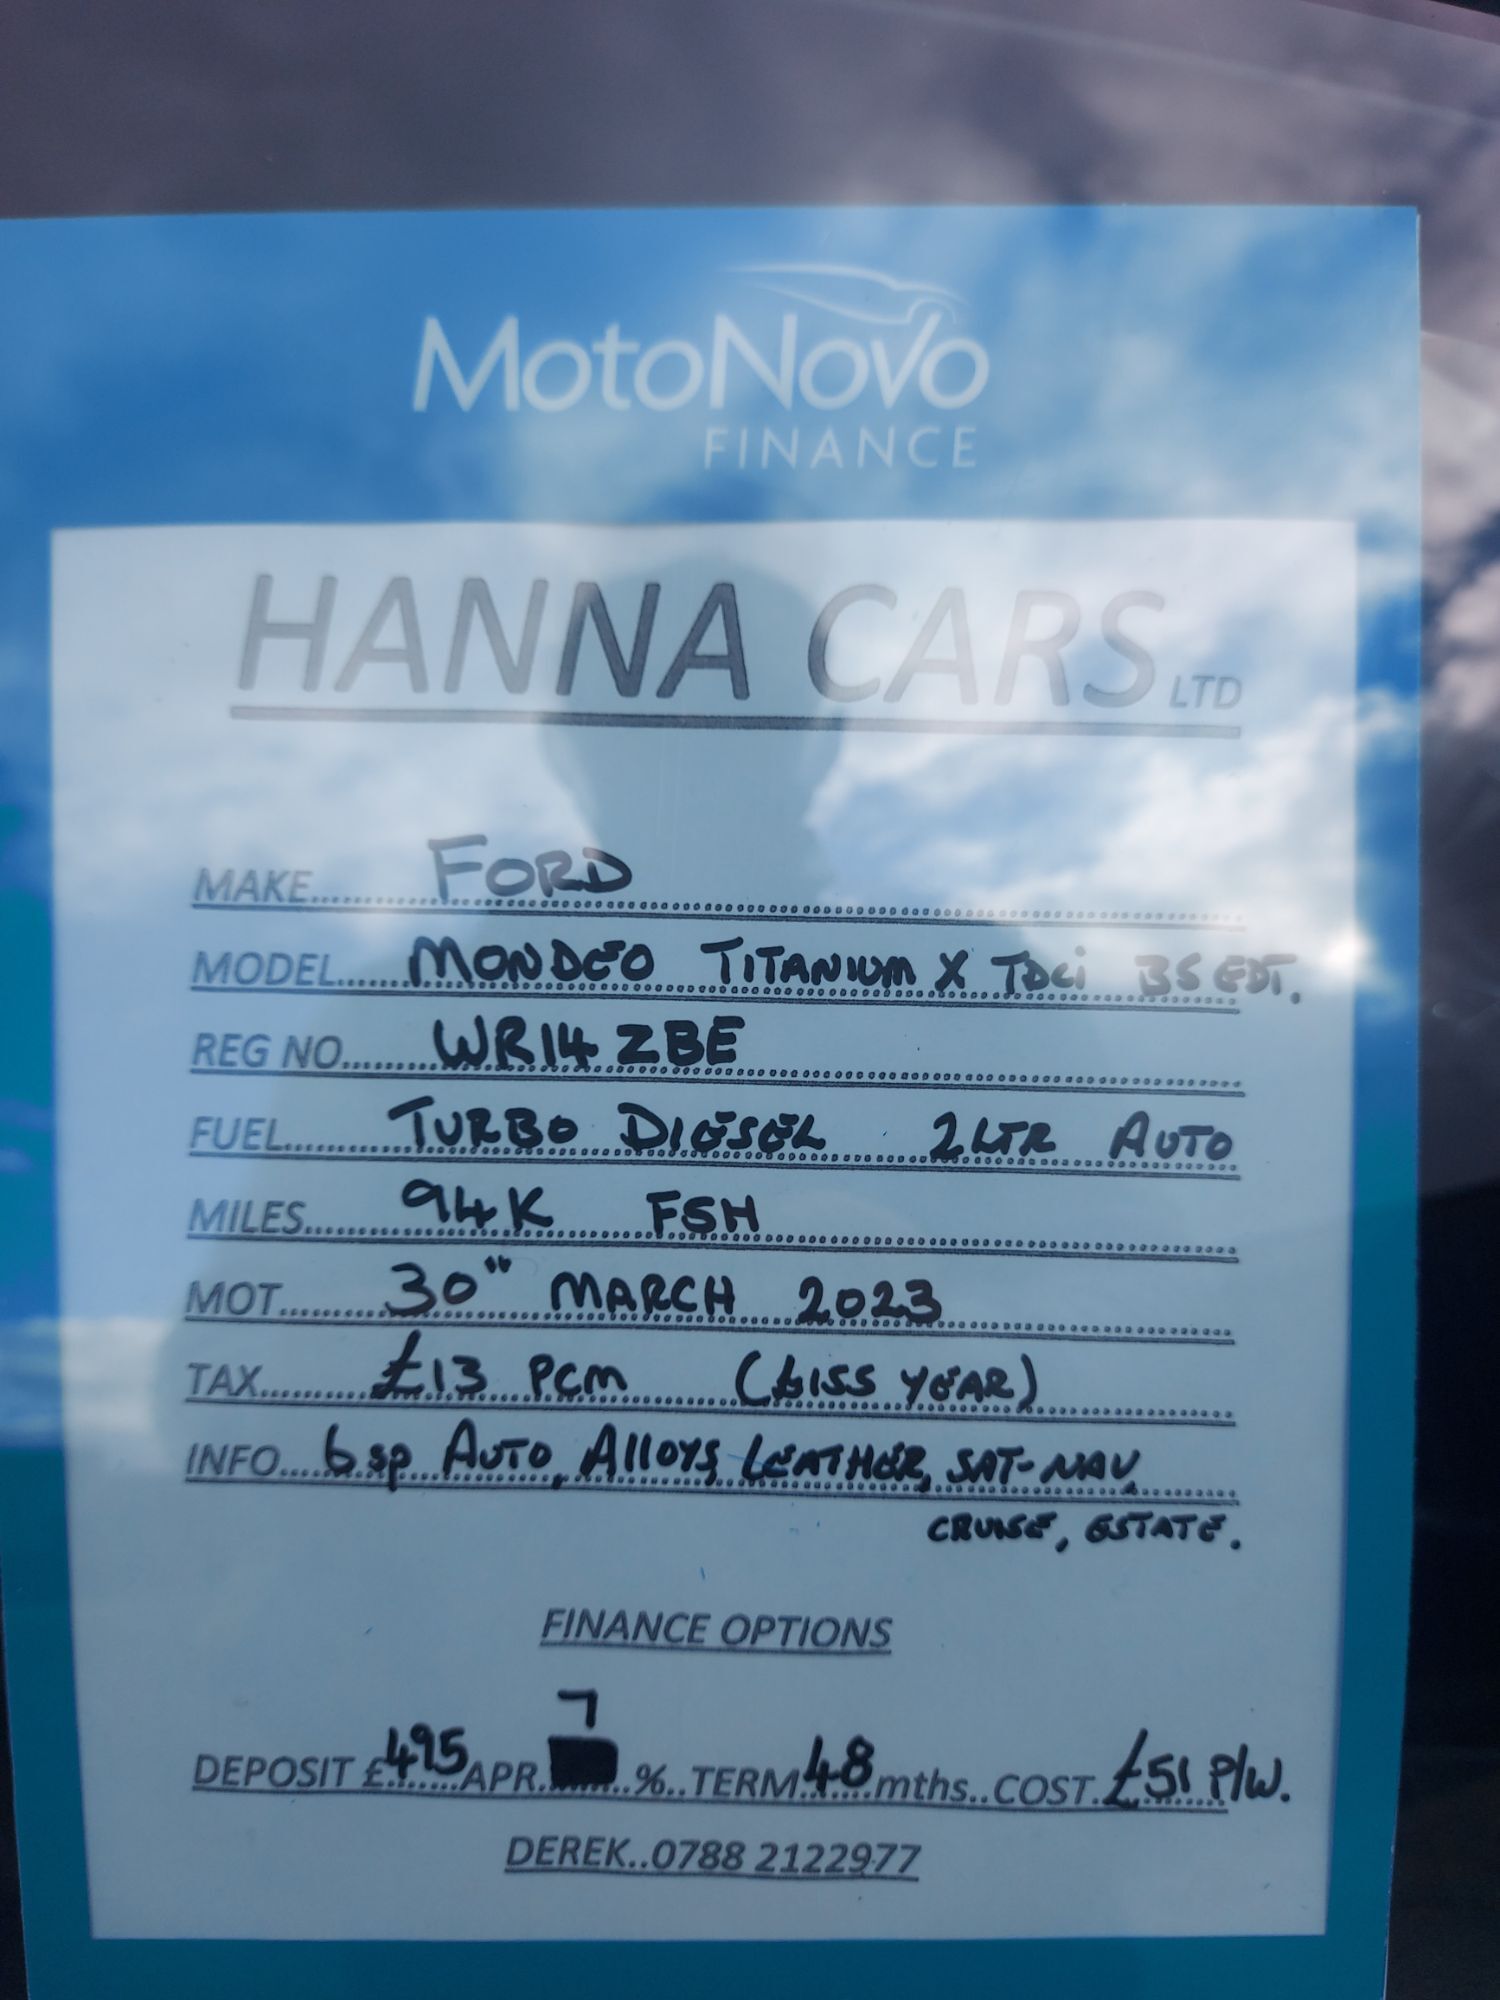 MotoNovo
FINANCE
HANNA CARS LTD
MAKE..... FORD
MODEL.... MONDEO TITANIUM X TDCi BS EDT.
REG NO..... WR14 ZBE
FUEL..... TURBO DIESEL 2LTR AUTO
MILES.... 94K FSH
MOT..... 30" MARCH 2023
TAX..... £13 PCM (£155 YEAR)
INFO.... 6sp AUTO, Alloys, LEATHER, SAT-NAV,
CRUISE, ESTATE.
FINANCE OPTIONS
7
DEPOSIT £ 495 APR.......% .. TERM 48 mths.. COST. £51 P/W.
DEREK..0788 2122977